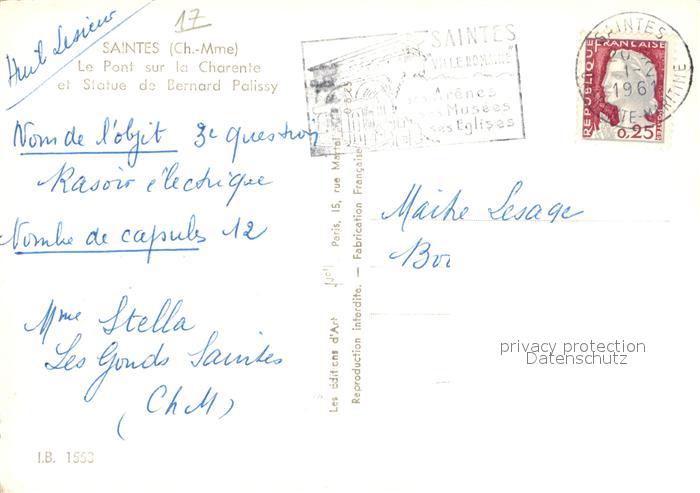 17
Huil Lesieur
SAINTES (Ch.-Mme)
Le Pont sur la Charente
et Statue de Bernard Palissy
Nom de l'objet 3e question
Rasoir électrique
Nombre de capsules 12
Mme Stella
Les Gonds Saintes
(Ch M)
I.B. 1553
Les éditions d'Art Paris, 15, rue Martel
Reproduction interdite. — Fabrication Française
SAINTES
VILLE ROMAINE
ses Arènes
ses Musées
ses Eglises
SAINTES
1961
MARITIME
REPUBLIQUE FRANÇAISE
0,25
Maitre Lesage
privacy protection
Datenschutz